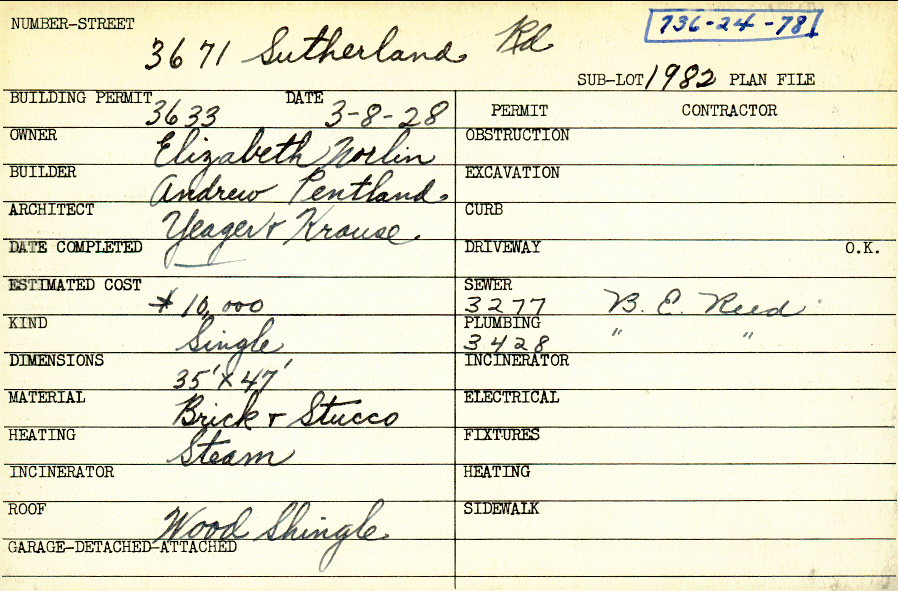 NUMBER-STREET
736-24-78
3671 Sutherland Rd
SUB-LOT 1982 PLAN FILE
BUILDING PERMIT 3633 DATE 3-8-28
OWNER Elizabeth Norlin
BUILDER Andrew Pentland
ARCHITECT Yeager & Krause
DATE COMPLETED
ESTIMATED COST $10,000
KIND Single
DIMENSIONS 35' X 47'
MATERIAL Brick & Stucco
HEATING Steam
INCINERATOR
ROOF Wood Shingle
GARAGE-DETACHED-ATTACHED
PERMIT CONTRACTOR
OBSTRUCTION
EXCAVATION
CURB
DRIVEWAY O.K.
SEWER
3277 B. E. Reed
PLUMBING
3428 " "
INCINERATOR
ELECTRICAL
FIXTURES
HEATING
SIDEWALK